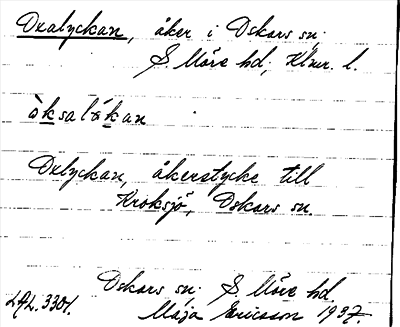 Oxalyckan, åker i Oskars sn.
S. Möre hd, Klmr. l.
òksalákan
Oxlyckan, åkerstycke till
Kroksjö, Oskars sn.
Oskars sn. S. Möre hd.
LAL. 3301. Maja Ericsson 1937.